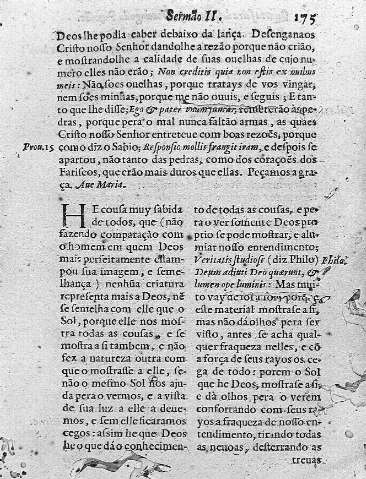 Sermão II. 175
Deos lhe podia caber debaixo da lança. Desenganaos
Cristo nosso Senhor dandolhe a rezão porque não crião,
e mostrandolhe a calidade de suas ouelhas de cujo nu
mero elles não erão; Non creditis quia non estis ex ouibus
meis: Não sois ouelhas, porque tratays de vos vingar,
nem sois minhas, porque me não ouuis, e seguis; E tan-
to que lhe disse; Ego & pater unum sumus, as pe-
dras, porque pera o mal nunca faltão armas, as quaes
Cristo nosso Senhor entreteue com boas rezoẽs, porque
Prou. 15 como diz o Sabio; Responsio mollis frangit iram, e despois se
apartou, não tanto das pedras, como dos coraçoẽs dos
Fariseos, que erão mais duros que ellas. Peçamos a gra-
ça. Aue Maria.
HE cousa muy sabida
de todos, que (não
fazendo comparação com
o homem em quem Deos
mais perfeitamente estam-
pou sua imagem, e seme-
lhança) nenhũa criatura
representa mais a Deos, nẽ
se semelha com elle que o
Sol, porque elle nos mos-
tra todas as cousas, e se
mostra a si tambem, e não
fez a natureza outra com
que o mostrasse a elle, se-
não o mesmo Sol nos aju-
da pera o vermos, e a vista
de sua luz a elle a deue-
mos, e sem elle ficaramos
cegos: assim he que Deos
he o que dá o conhecimen-
to de todas as cousas, e pe-
ra o ver somente Deos pro
prio se pode mostrar, e alu-
miar nosso entendimento;
Veritatis studiose (diz Philo) Philo.
Deum adiuti Deo quærunt, &
lumen ope luminis: Mas mui-
to vay de porque
este material mostrase a si,
mas não dá olhos pera ser
visto, antes se acha qual-
quer fraqueza nelles, e cõ
a força de seus rayos os ce-
ga de todo: porem o Sol
que he Deos, mostrase a si,
e dá olhos pera o verem
confortando com seus ra-
yos a fraqueza de nosso en-
tendimento, tirando todas
as neuoas, desterrando as
treuas